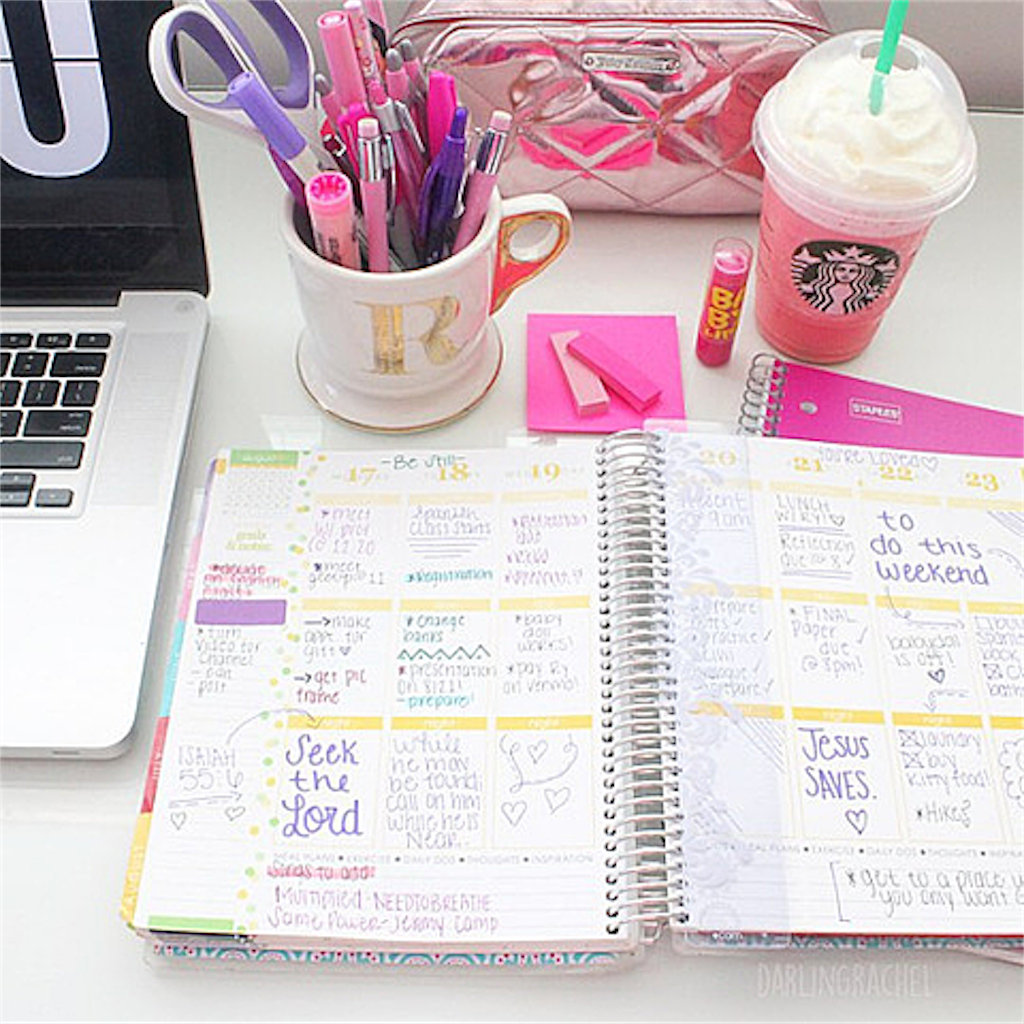 U
R
BABY
LIPS
STAPLES
august
- Be still -
17
18
19
* meet
w/ prof
@ 12:20
* meet
group@11
Spanish
class starts
* Registration
goals
& notes:
* turn
video for
channel
→ make
appt for
gift
→ get pic
frame
* change
banks
* presentation
on 8/21!
- prepare!
* baby
doll
works!
* pay RJ
on venmo!
night
night
night
ISAIAH
55:6
Seek
the
Lord
while
he may
be found;
call on him
while he is
near.
MEAL PLANS • EXERCISE • DAILY DOS • THOUGHTS • INSPIRATION
songs to add
Multiplied-NEEDTOBREATHE
Same Power-Jeremy Camp
You're Loved
20
21
22
23
9am
LUNCH
w/
Reflection
due @ 8
to
do this
weekend
prepare
notes
practice
prepare
* FINAL
Paper
due
@ 8pm!
babydoll
is off!
book
night
night
JESUS
SAVES.
laundry
buy
kitty food!
* Hike?
EXERCISE • DAILY DOS • THOUGHTS •
* get to a place
you only want
DARLINGRACHEL